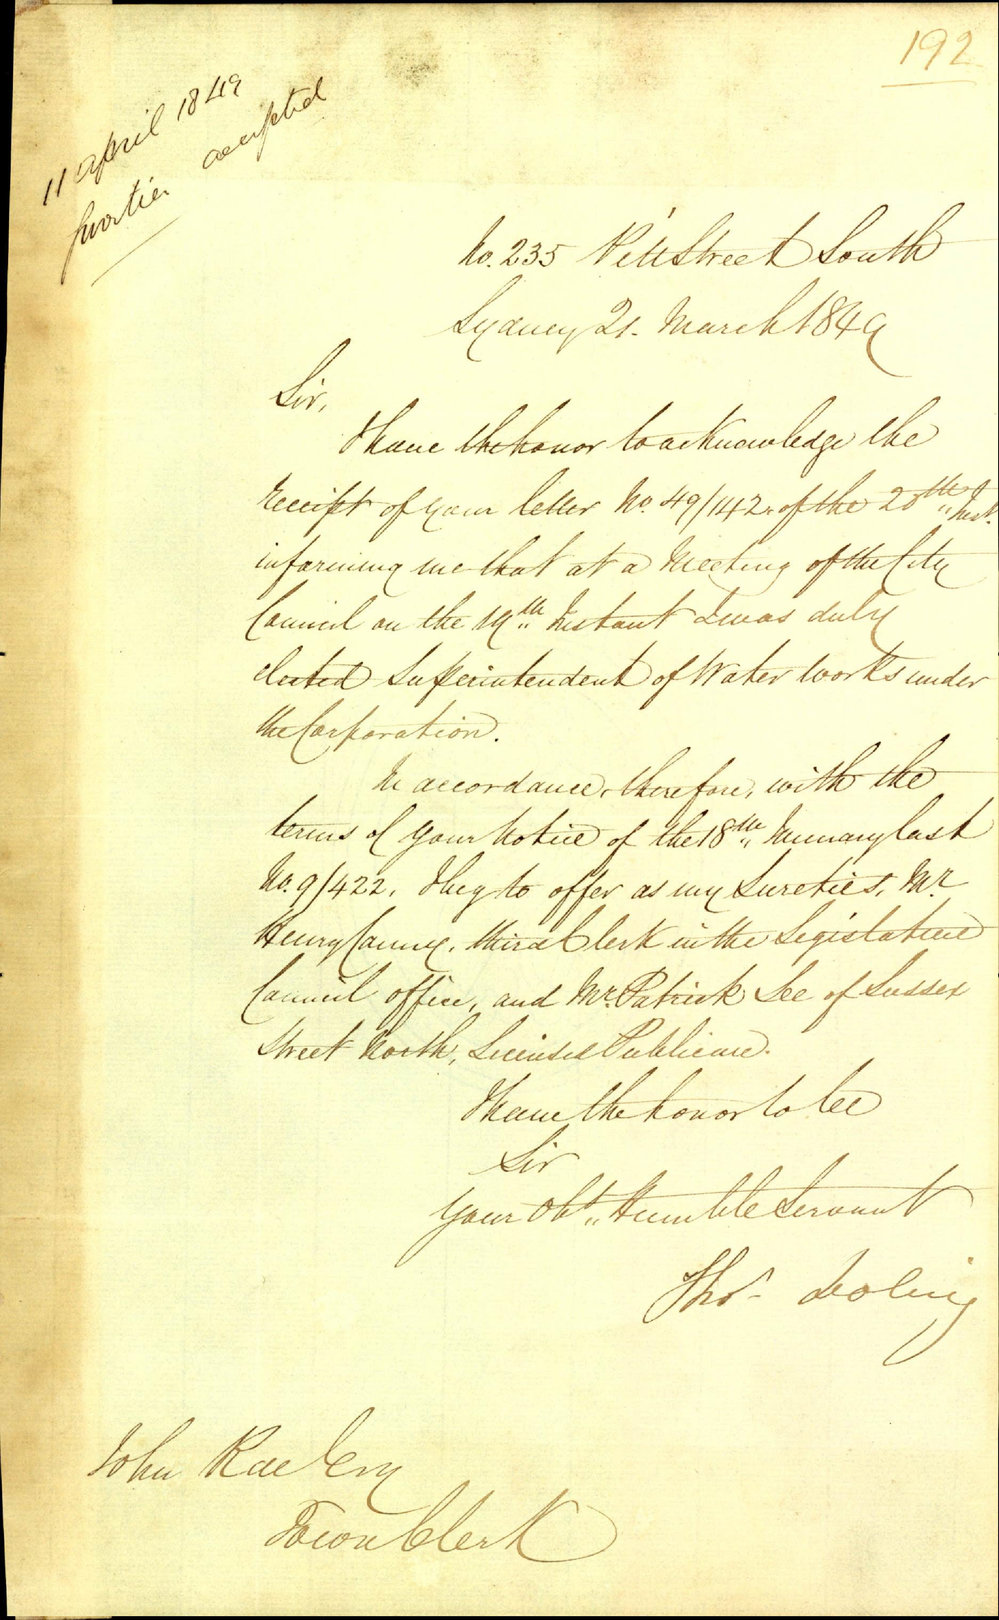 192
11 April 1849
accepted
No. 235 Pitt Street South
Sydney 21. March 1849
Sir,
I have the honor to acknowledge the
receipt of your letter No. 49/142. of the 20th Inst.
informing me that at a Meeting of the City
Council on the 19th Instant I was duly
elected Superintendent of Water Works under
the Corporation.
In accordance, therefore, with the
terms of your Notice of the 18th January last
No. 9/422. I beg to offer as my Sureties, Mr.
Henry Canny, third Clerk in the Legislative
Council office, and Mr. Patrick Lee of Sussex
Street North, Licensed Publican.
I have the honor to be
Sir
Your Obt. Humble Servant
Thos. Doling
John Rae Esq
Town Clerk